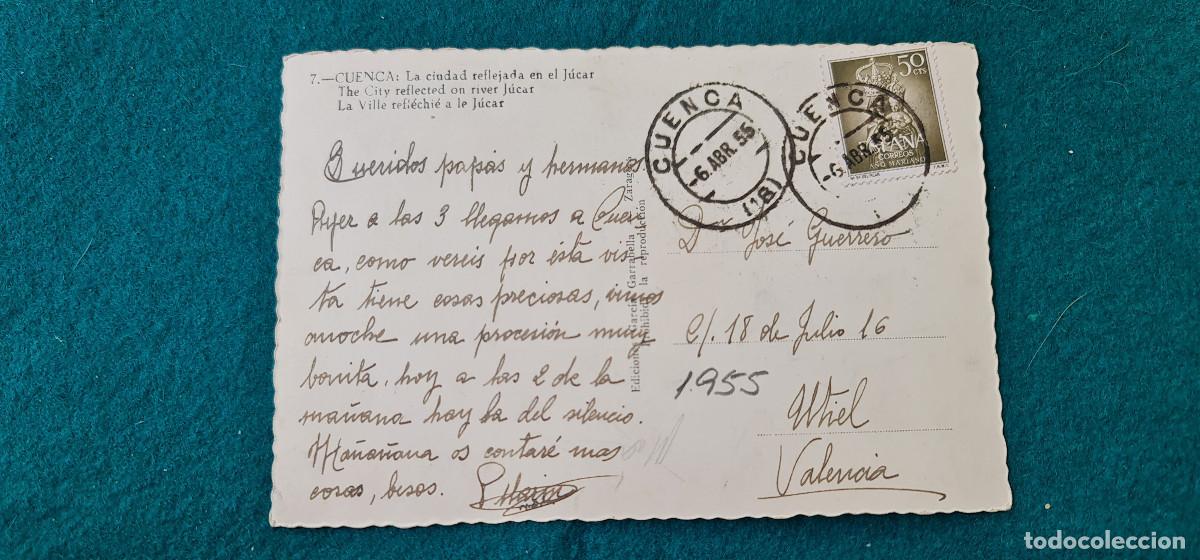 7.—CUENCA: La ciudad reflejada en el Júcar
The City reflected on river Júcar
La Ville refléchié a le Júcar
Queridos papás y hermanos
Ayer a las 3 llegamos a Cuen
ca, como vereis por esta vis-
ta tiene cosas preciosas, vimos
anoche una procesión muy
bonita, hoy a las 2 de la
mañana hay la del silencio.
Mañañana os contaré mas
cosas, besos.
Ediciones García Garrabella Zaragoza
Prohibida la reproducción
CUENCA
-6.ABR.55
(18)
CUENCA
-6.ABR.55
50
CTS
ESPAÑA
CORREOS
AÑO MARIANO
Dn José Guerrero
C/. 18 de Julio 16
1955
Utiel
Valencia
todocoleccion